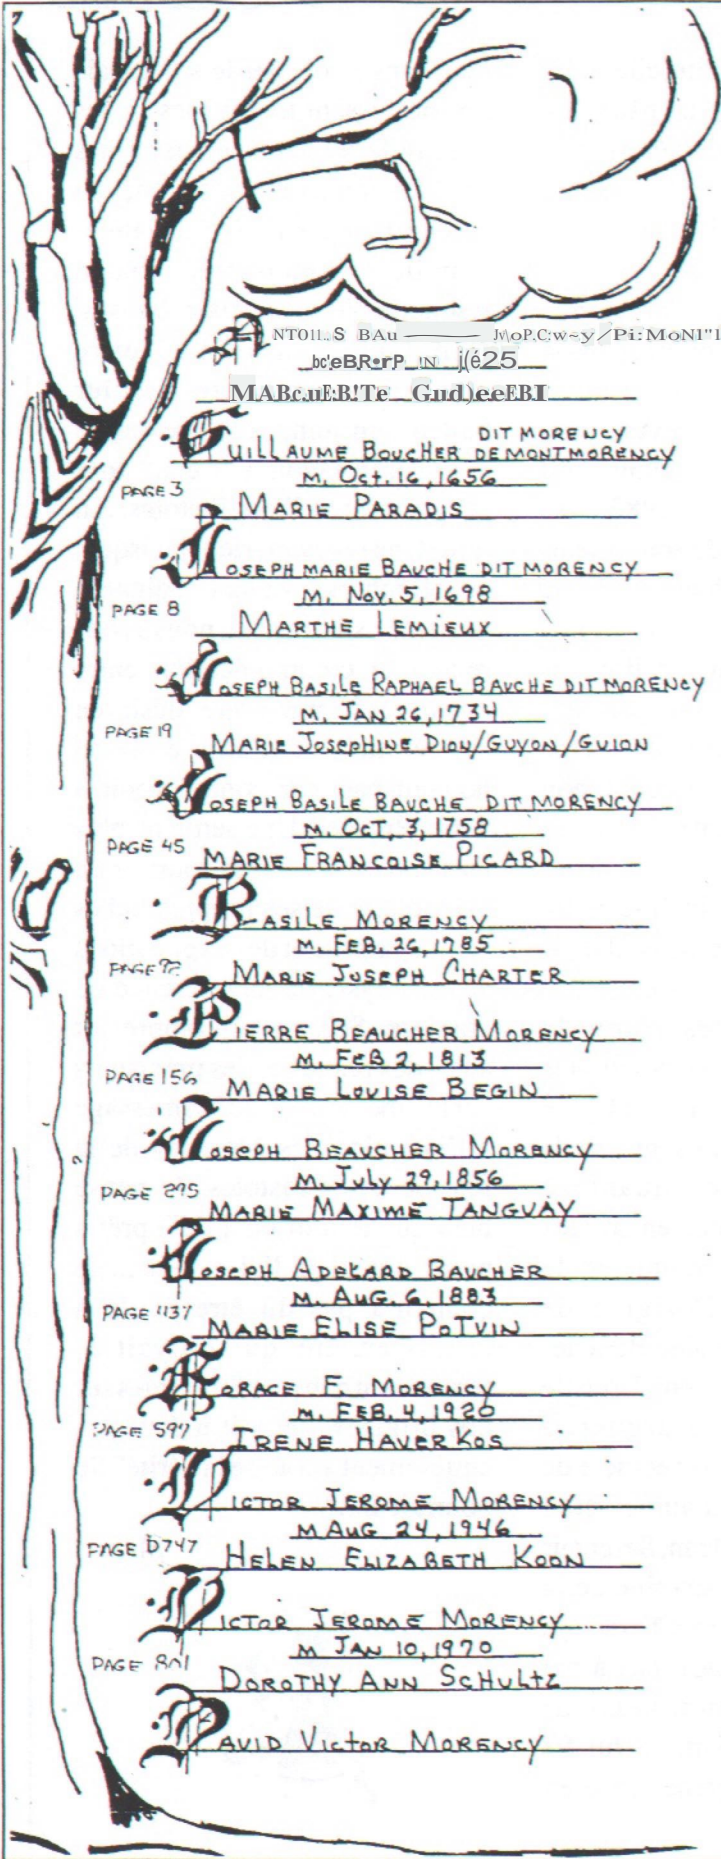 NTO11..S BAu Jv\oP.C:w~y/Pi:MoN1"1
bc'eBR•rP IN j(é25
MABc.uE:B!Te Gud)eeEBI
DIT MORENCY
GUILLAUME BOUCHER DEMONTMORENCY
M. Oct. 16, 1656
PAGE 3
MARIE PARADIS
JOSEPH MARIE BAUCHE DIT MORENCY
M. Nov. 5, 1698
PAGE 8
MARTHE LEMIEUX
JOSEPH BASILE RAPHAEL BAUCHE DIT MORENCY
M. JAN 26, 1734
PAGE 19
MARIE JOSEPHINE DION/GUYON/GUION
JOSEPH BASILE BAUCHE DIT MORENCY
M. OCT, 3, 1758
PAGE 45
MARIE FRANCOISE PICARD
BASILE MORENCY
M. FEB. 26, 1785
PAGE 92
MARIE JOSEPH CHARTER
PIERRE BEAUCHER MORENCY
M. FEB 2, 1813
PAGE 156
MARIE LOUISE BEGIN
JOSEPH BEAUCHER MORENCY
M. July 29, 1856
PAGE 295
MARIE MAXIME TANGUAY
JOSEPH ADELARD BAUCHER
M. AUG. 6, 1883
PAGE 437
MARIE ELISE POTVIN
HORACE F. MORENCY
M. FEB. 4, 1920
PAGE 597
IRENE HAVERKOS
VICTOR JEROME MORENCY
M AUG 24, 1946
PAGE D747
HELEN ELIZABETH KOON
VICTOR JEROME MORENCY
M JAN 10, 1970
PAGE 801
DOROTHY ANN SCHULTZ
DAVID VICTOR MORENCY